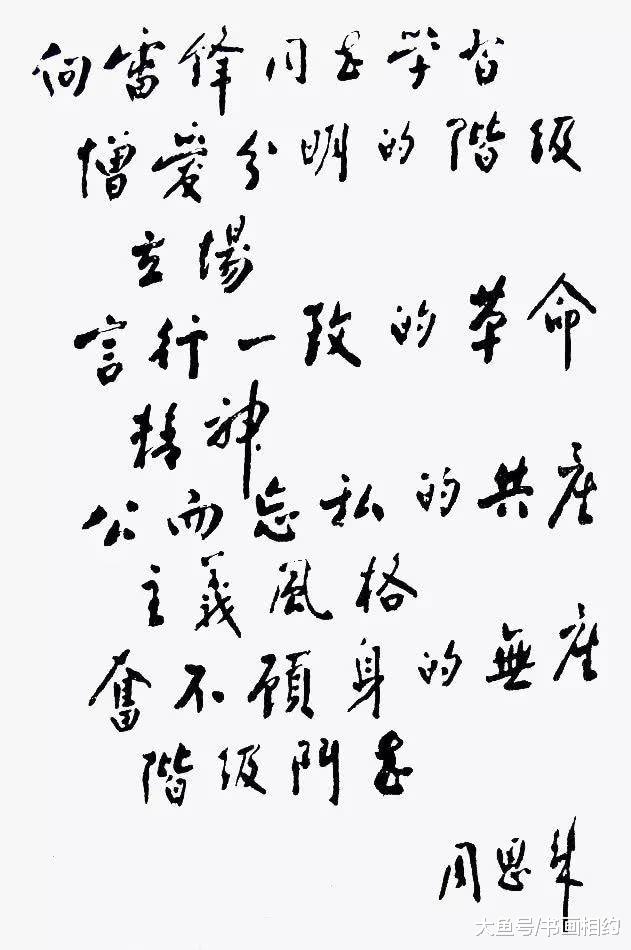 向雷锋同志学習
憎愛分明的階级
立場
言行一致的革命
精神
公而忘私的共産
主義風格
奮不顧身的無産
階级鬥志
周恩来
大鱼号/书画相约